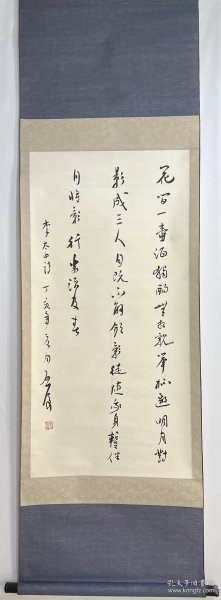 花間一壺酒獨酌無相親舉杯邀明月對
影成三人月既不解飲影徒隨我身暫伴
月將影行樂須及春
李太白詩 丁亥年
孔夫子旧书网